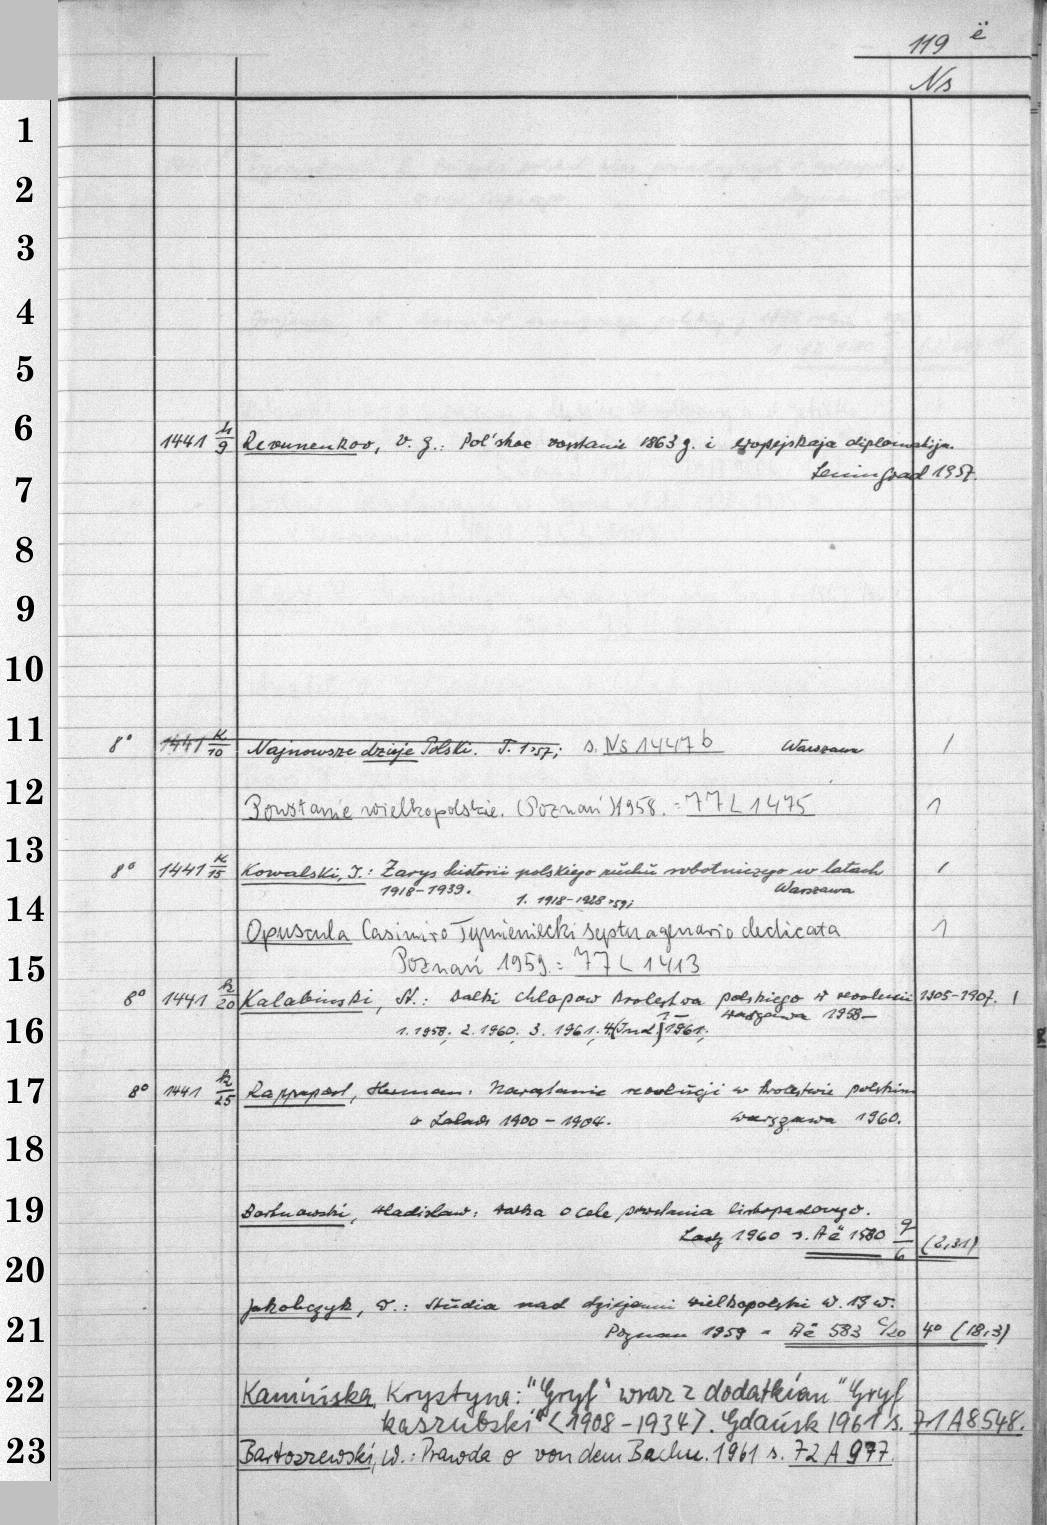 119 ë
Ns
1
2
3
4
5
6
1441 h/9 Revunenkov, V. g.: Pol'skoe vosstanie 1863 g. i evropejskaja diplomatija.
Leningrad 1957.
7
8
9
10
11
8° 1441 K/10 Najnowsze dzieje Polski. T. 1957; s. Ns 1447 b Warszawa 1
12
Powstanie wielkopolskie. (Poznań) 1958. = 77 L 1475 1
13
8° 1441 K/15 Kowalski, J.: Zarys historii polskiego ruchu robotniczego w latach 1
1918-1939. Warszawa
1. 1918-1928 '59;
14
Opuscula Casimiro Tymieniecki septuagenario dedicata 1
15
Poznań 1959. = 77 L 1413
8° 1441 k/20 Kalabinski, St.: Walki chlopow Krolestwa polskiego w rewolucii 1905-1907. 1
Warszawa 1958-
16
1. 1958, 2. 1960, 3. 1961, 4 (Ind.) 1961;
17
8° 1441 k/25 Rappaport, Herman: Narastanie rewolucji w Krolestwie polskim
w Latach 1900-1904. Warszawa 1960.
18
19
Bortnowski, Wladislaw: Walka o cele powstania listopadowego.
Lodz 1960 s. Aë 1580 9/6 (2,31)
20
Jakobczyk, W.: Studia nad dziejami wielkopolski w. 19 w.
21
Poznan 1959 = Aë 583 c/20 4° (18,3)
22
Kamińska, Krystyna: "Gryf" wraz z dodatkiem "Gryf
kaszubski" <1908-1934>. Gdańsk 1961 s. 71 A 8548.
23
Bartoszewski, W.: Prawda o von dem Bachu. 1961 s. 72 A 977.